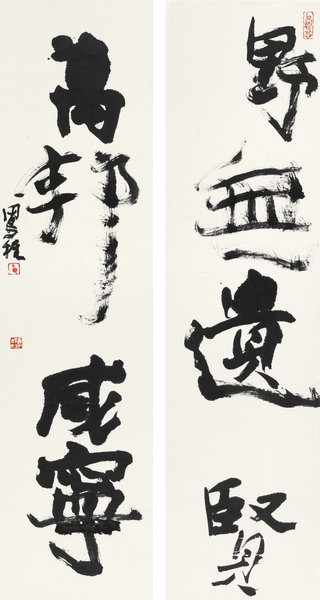 野無遺賢
萬邦咸寧